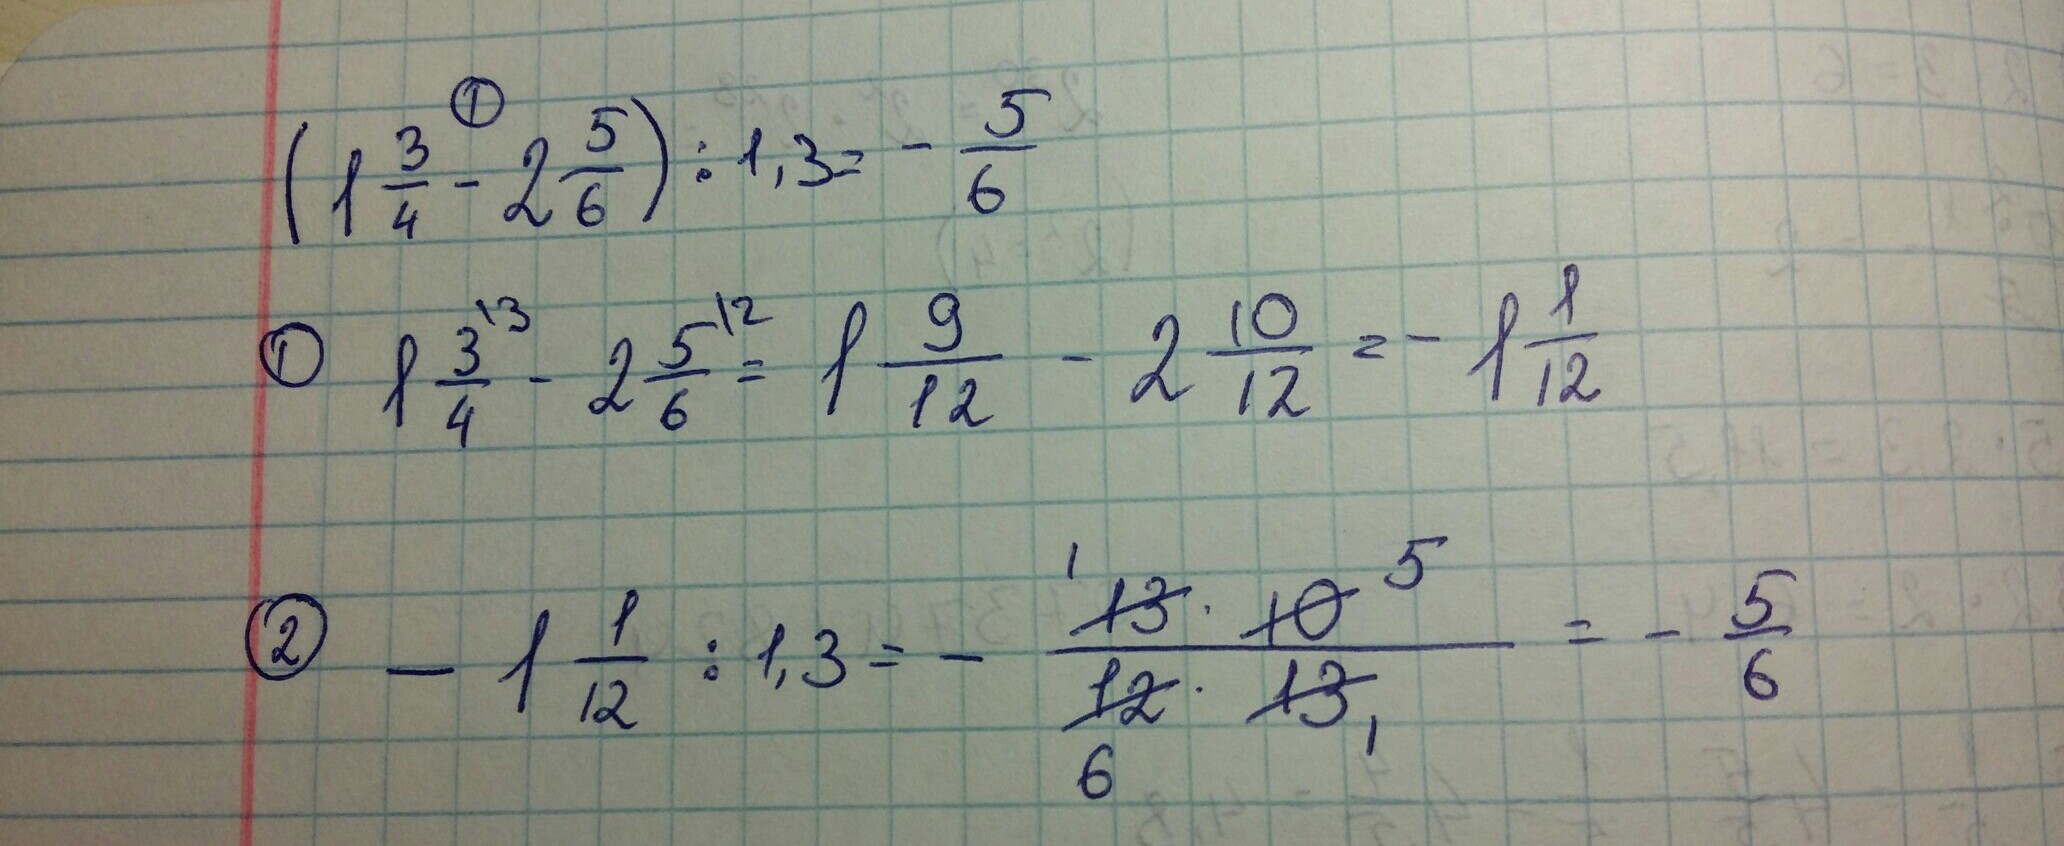 (1 3/4 - 2 5/6) : 1,3 = - 5/6
① 1 3/4 \3 - 2 5/6 \2 = 1 9/12 - 2 10/12 = - 1 1/12
② - 1 1/12 : 1,3 = - 13 · 10 / 12 · 13 = - 5/6